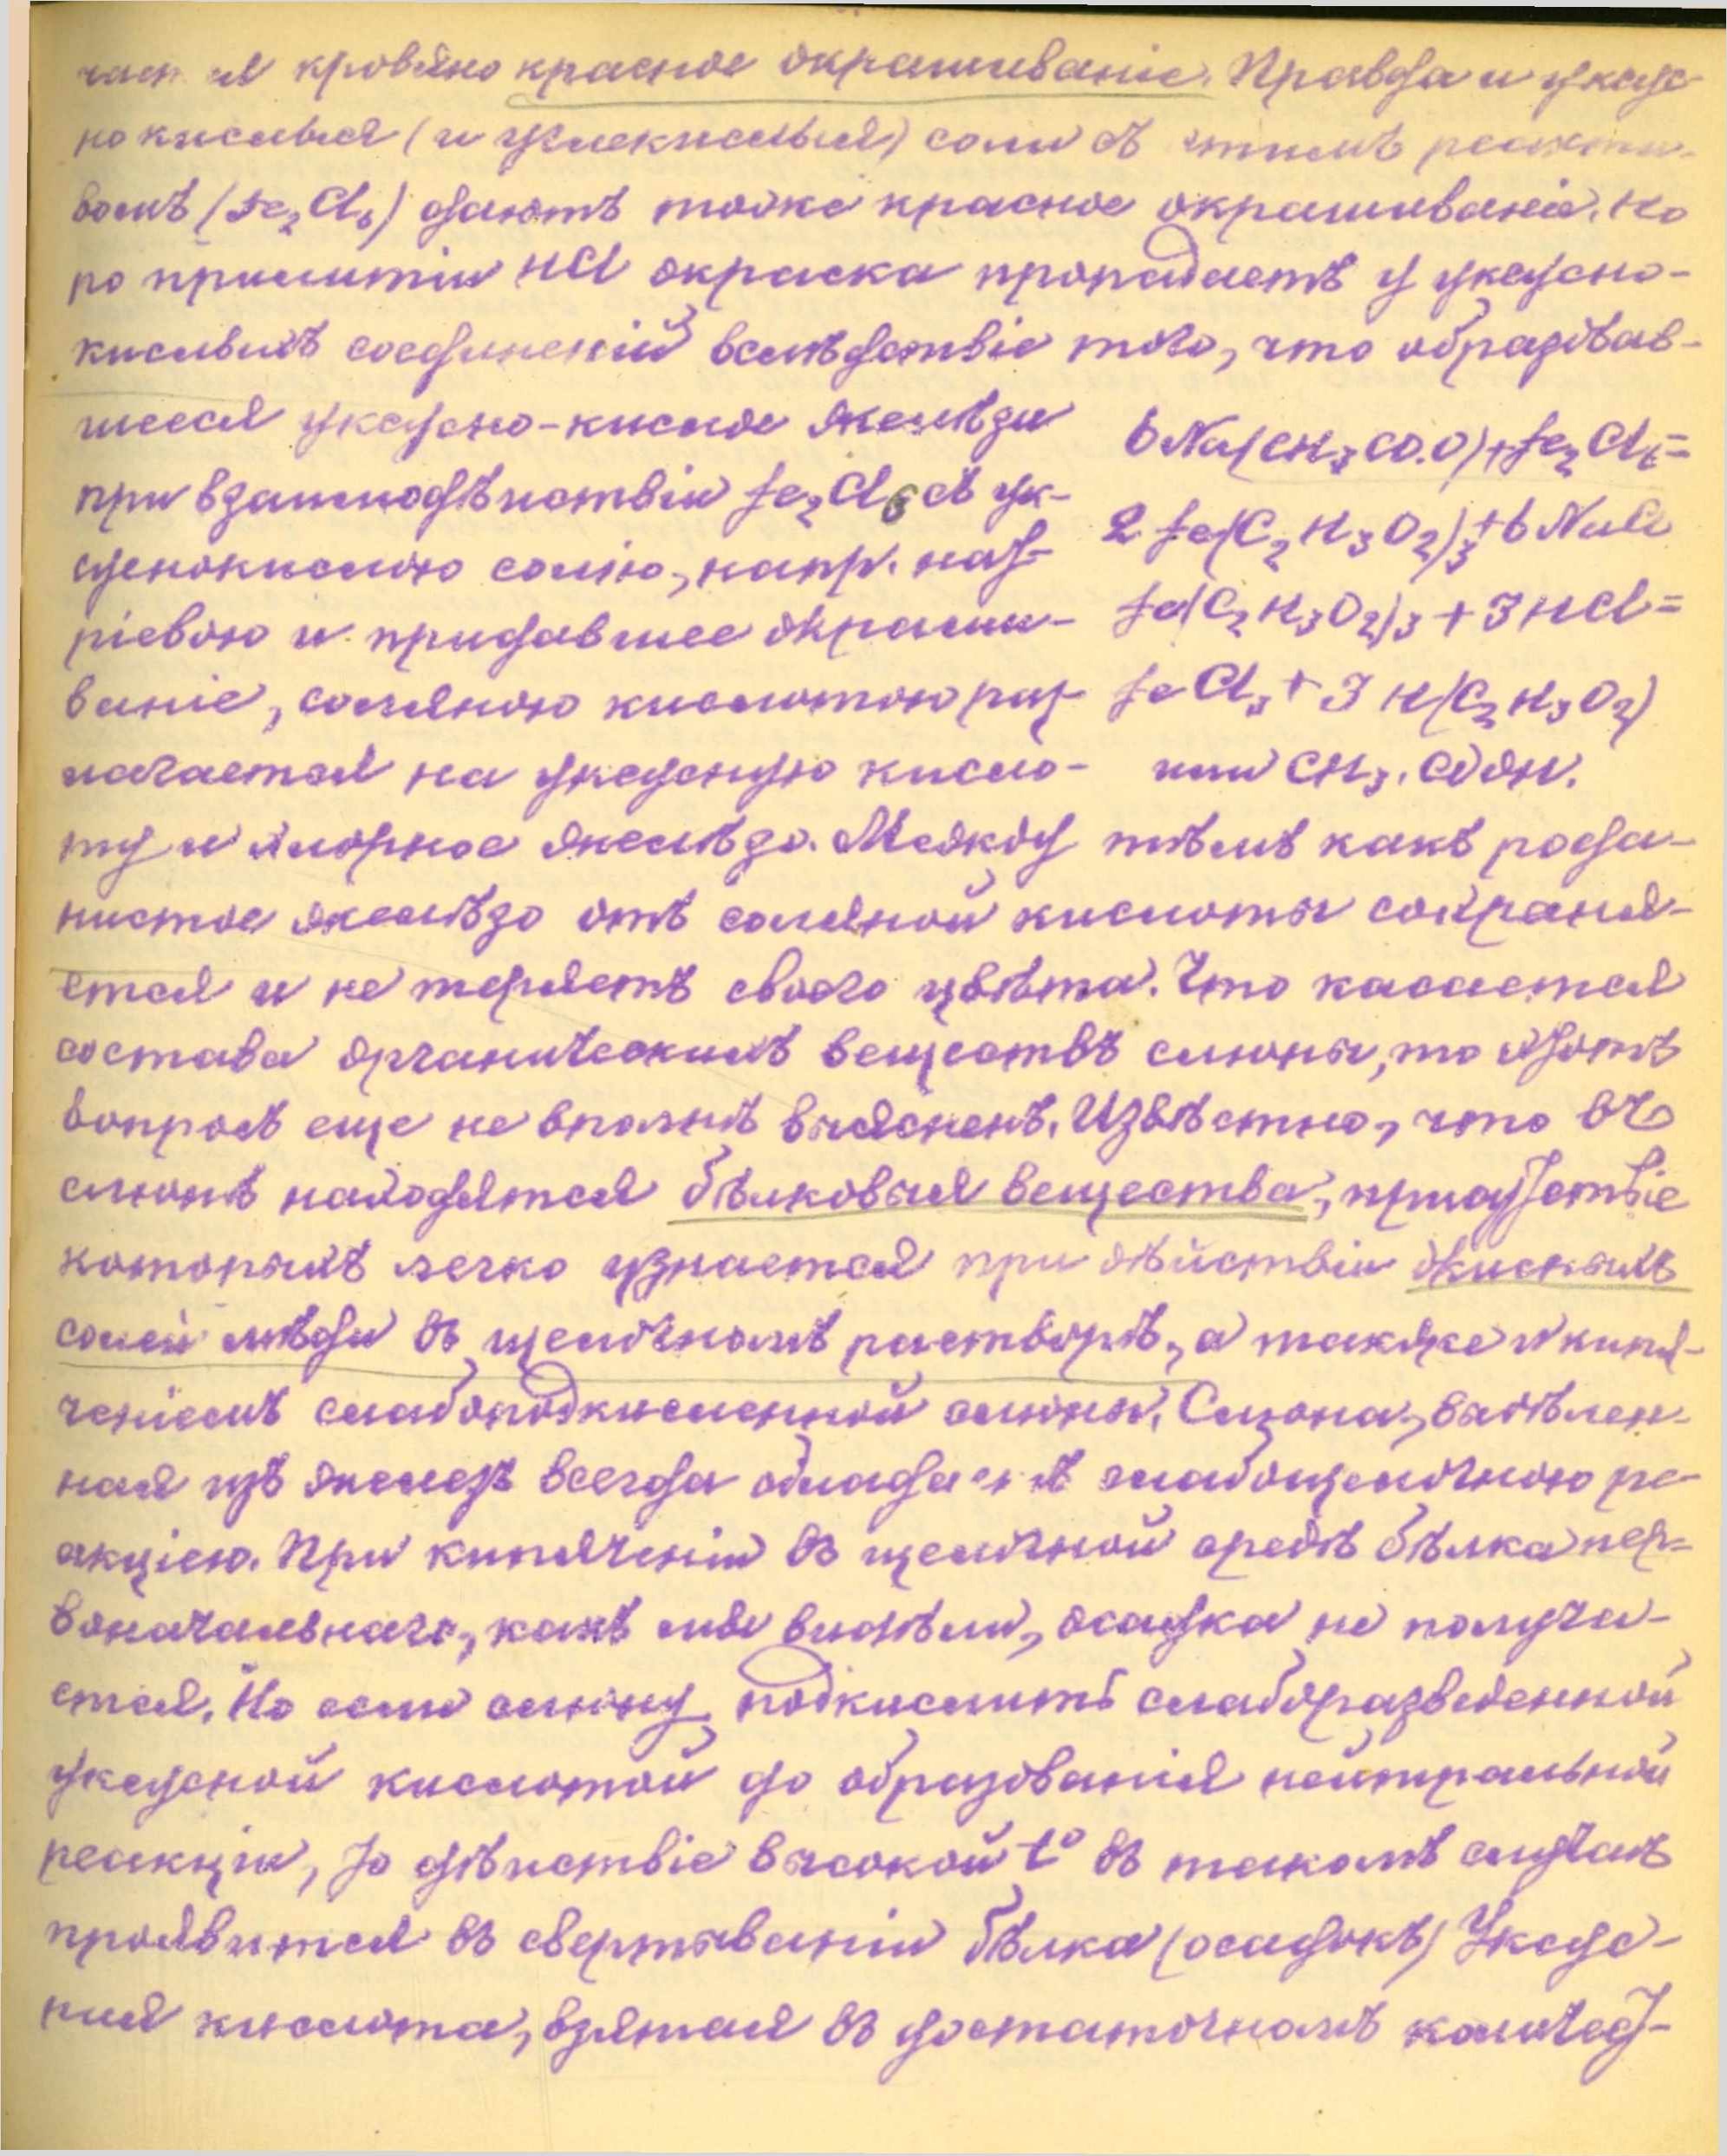 чается кровяно красное окрашиваніе. Правда и уксус-
нокислыя (и углекислыя) соли съ этимъ реакти-
вомъ (Fe₂Cl₆) даютъ тоже красное окрашиваніе. Но
по прилитіи HCl окраска пропадаетъ у уксусно-
кислыхъ соединеній вслѣдствіе того, что образовав-
шееся уксусно-кислое желѣзи
при взаимодѣйствіи Fe₂Cl₆ съ ук-
суснокислою солію, напр. нат-
ріевою и придавшее окраши-
ваніе, соляною кислотою раз-
лагается на уксусную кисло-
6Na(CH₃CO.O)+Fe₂Cl₆=
2Fe(C₂H₃O₂)₃+6NaCl
Fe(C₂H₃O₂)₃+3HCl=
FeCl₃+3H(C₂H₃O₂)
или CH₃.COOH.
ту и хлорное желѣзо. Между тѣмъ какъ рода-
нистое желѣзо отъ соляной кислоты сохраня-
ется и не теряетъ своего цвѣта. Что касается
состава органическихъ веществъ слюны, то этотъ
вопросъ еще не вполнѣ выясненъ. Извѣстно, что въ
слюнѣ находятся бѣлковыя вещества, присутствіе
которыхъ легко узнается при дѣйствіи окисныхъ
солей мѣди въ щелочномъ растворѣ, а также и кипя-
ченіемъ слабоподкисленной слюны. Слюна, выдѣлен-
ная изъ железъ всегда обладаетъ слабощелочною ре-
акціею. При кипяченіи въ щелочной средѣ бѣлка пер-
воначальнаго, какъ мы видѣли, осадка не получа-
ется. Но если слюну подкислить слаборазведенной
уксусной кислотой до образованія нейтральной
реакціи, то дѣйствіе высокой t° въ такомъ случаѣ
проявится въ свертываніи бѣлка (осадокъ) Уксус-
ная кислота, взятая въ достаточномъ количест-